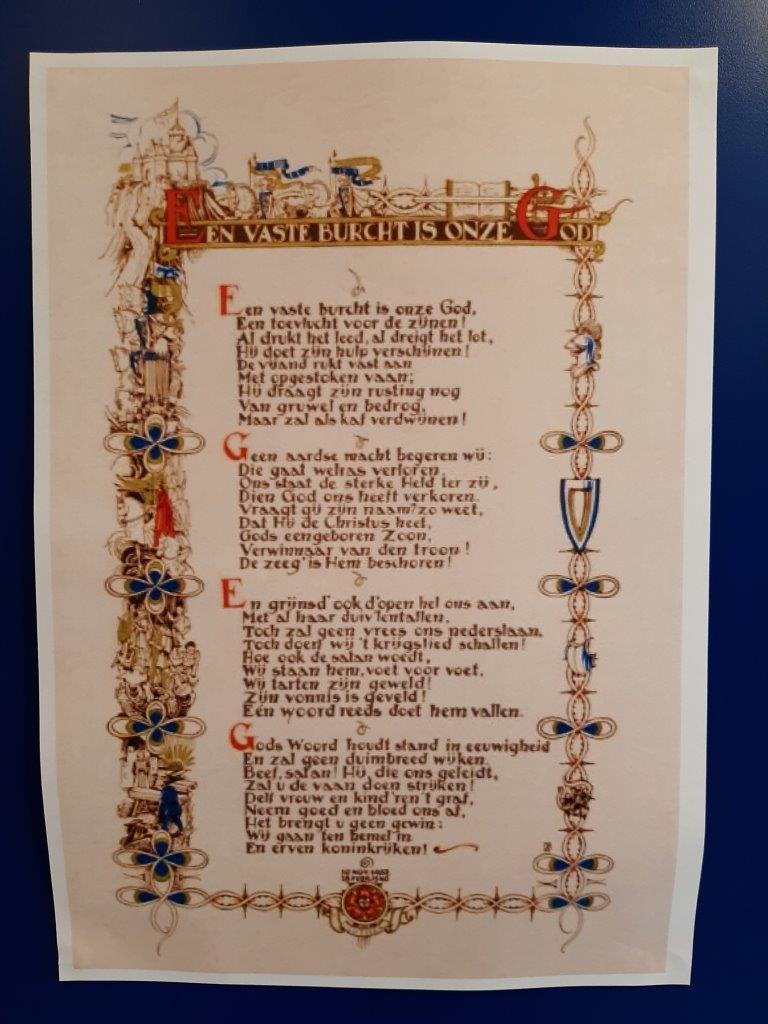 EEN VASTE BURCHT IS ONZE GOD
Een vaste burcht is onze God,
Een toevlucht voor de zijnen!
Al drukt het leed, al dreigt het lot,
Hij doet zijn hulp verschijnen!
De vijand rukt vast aan
Met opgestoken vaan;
Hij draagt zijn rusting nog
Van gruwel en bedrog,
Maar zal als kaf verdwijnen!
Geen aardse macht begeren wij:
Die gaat welras verloren.
Ons staat de sterke Held ter zij,
Dien God ons heeft verkoren.
Vraagt gij zijn naam? zo weet,
Dat Hij de Christus heet,
Gods eengeboren Zoon,
Verwinnaar van den troon!
De zeeg' is Hem beschoren!
En grijnsd' ook d'open hel ons aan,
Met al haar duiv'lentallen,
Toch zal geen vrees ons nederslaan,
Toch doen wij 't krijgslied schallen!
Hoe ook de satan woedt,
Wij staan hem, voet voor voet,
Wij tarten zijn geweld!
Zijn vonnis is geveld!
Eén woord reeds doet hem vallen.
Gods Woord houdt stand in eeuwigheid
En zal geen duimbreed wijken.
Beef, satan! Hij, die ons geleidt,
Zal u de vaan doen strijken!
Delf vrouw en kind'ren 't graf,
Neem goed en bloed ons af,
Het brengt u geen gewin:
Wij gaan ten hemel in
En erven koninkrijken!
10 NOV. 1483
18 FEBR. 1546